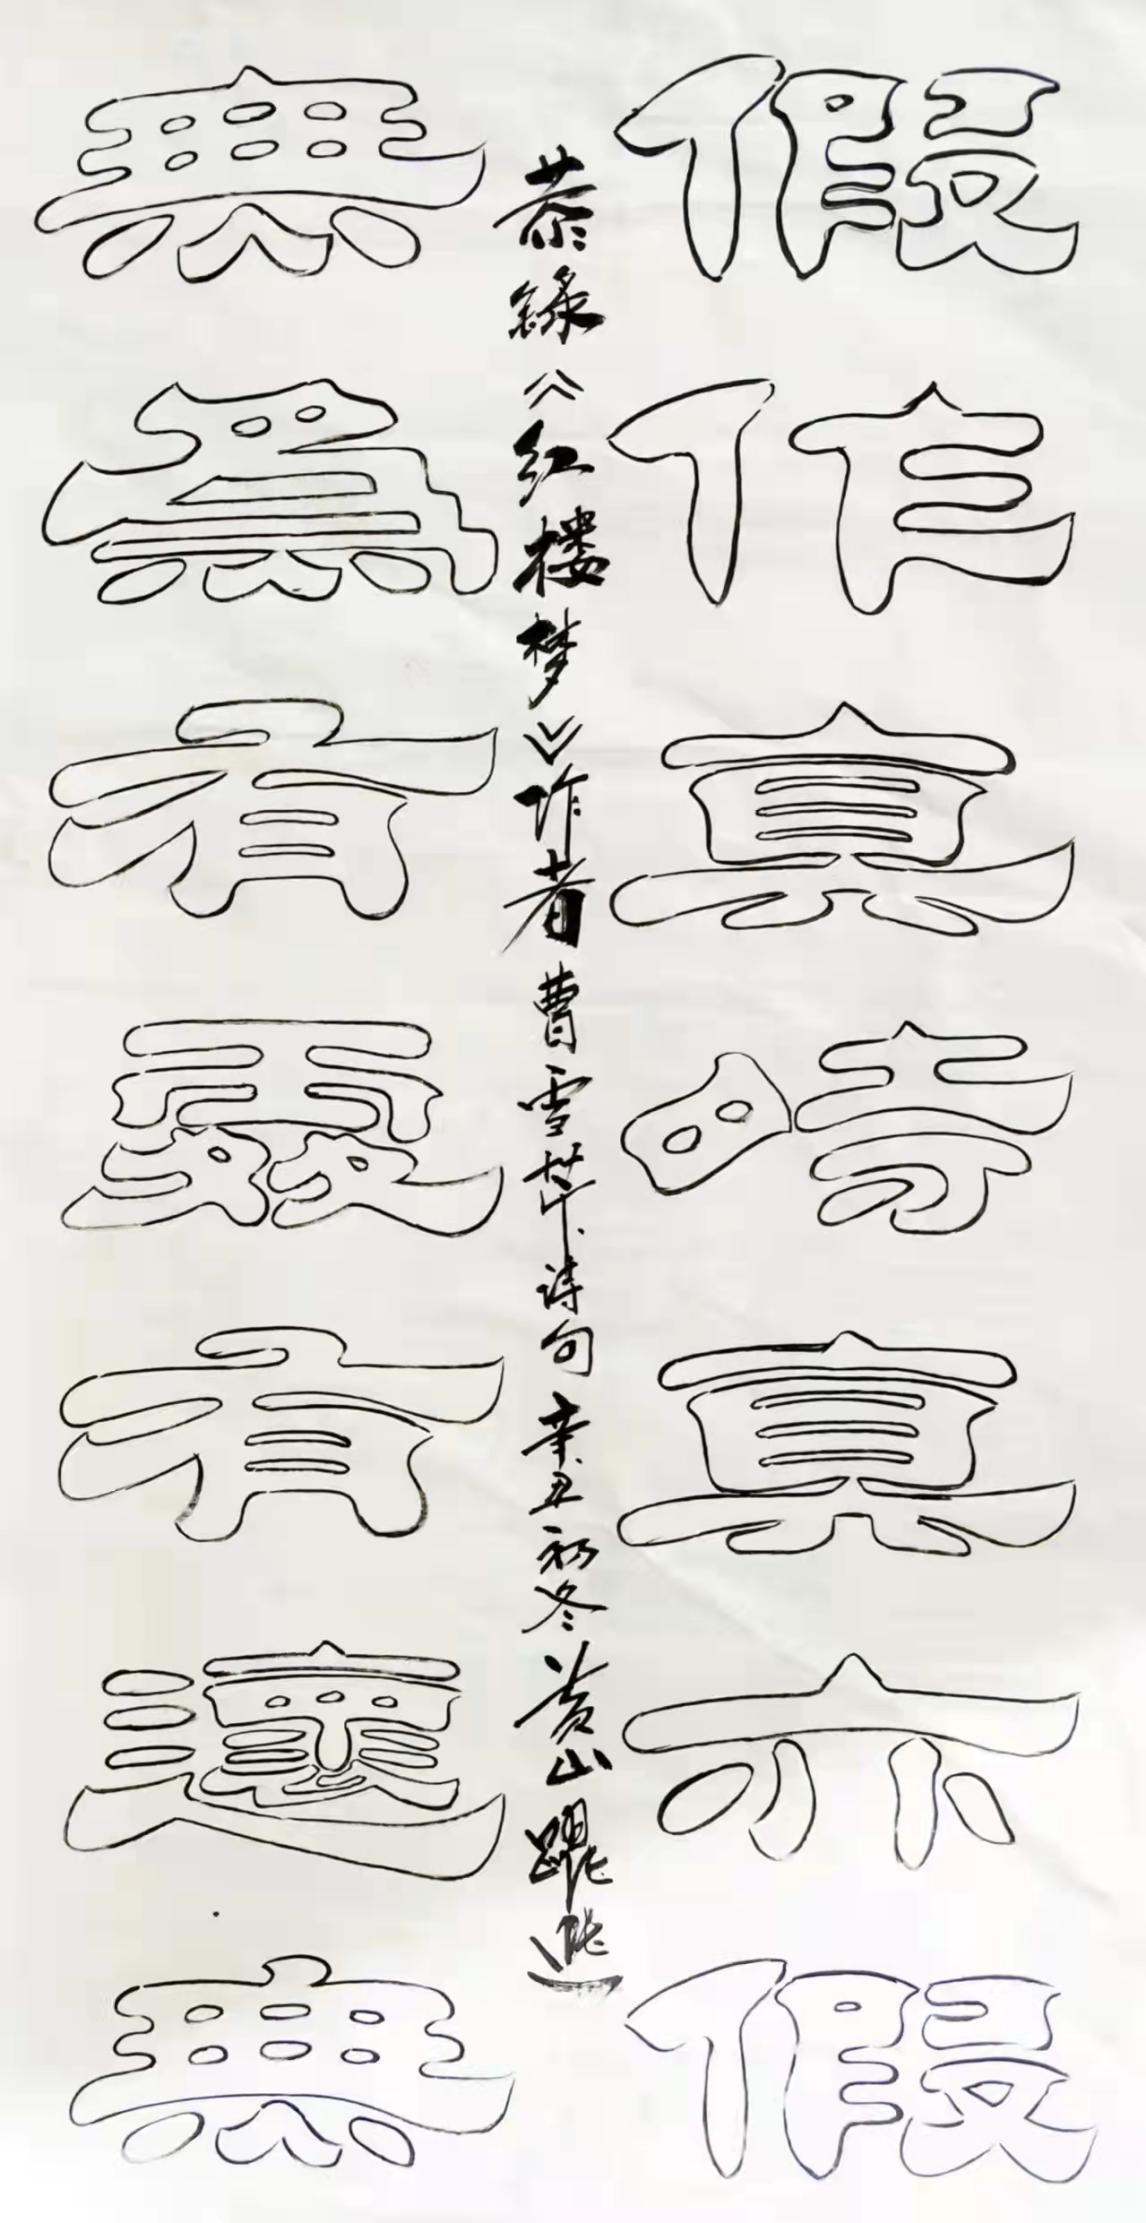 假作真時真亦假
恭錄《红楼梦》作者曹雪芹诗句 辛丑初冬 黄山
無爲有處有還無